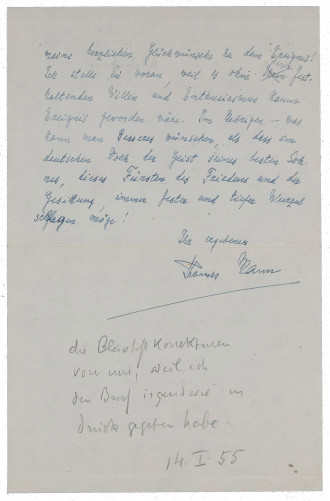 meine herzlichen Glückwünsche zu dem Ereignis!
Ich stelle Sie voran, weil es ohne Ihren fest-
haltenden Willen und Enthusiasmus kaum
Ereignis geworden wäre. Im Uebrigen – was
kann man Besseres wünschen, als dass im
deutschen Volk der Geist seines besten Soh-
nes, dieses Fürsten des Friedens und der
Gesittung, immer fester und tiefer Wurzel
schlagen möge!
Ihr ergebener
Thomas Mann
die Bleistiftkorrekturen
von mir, weil ich
den Brief irgendwie in
Druck gegeben habe.
14. I. 55